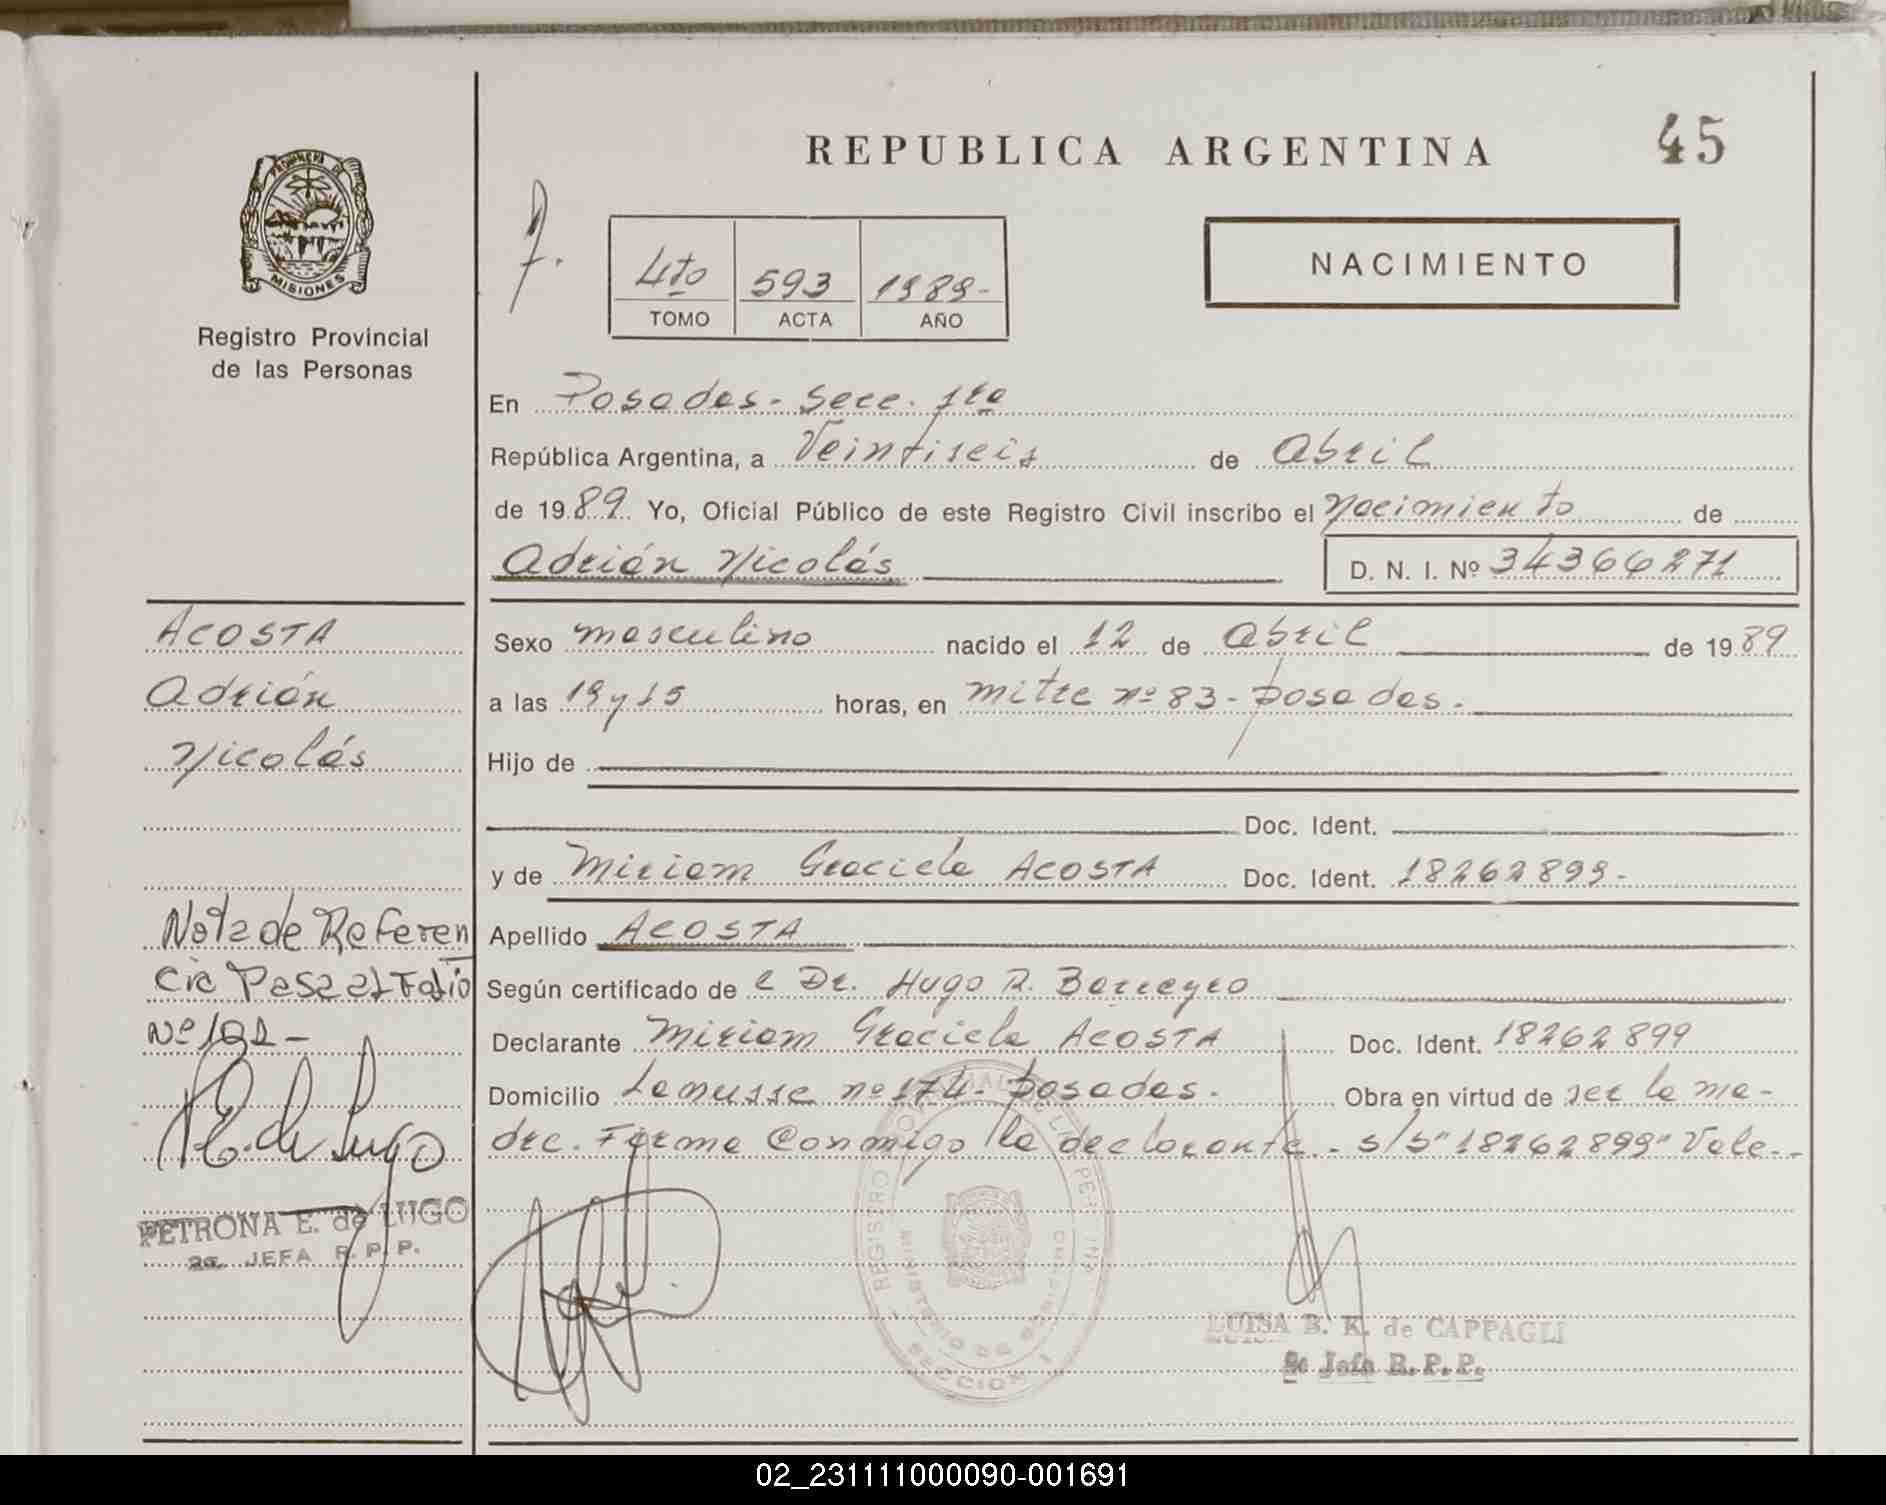 REPUBLICA ARGENTINA
45
PROVINCIA DE MISIONES
Registro Provincial
de las Personas
4to 593 1989-
TOMO ACTA AÑO
NACIMIENTO
En Posadas- Secc. 1ra
República Argentina, a Veintiseis de Abril
de 1989. Yo, Oficial Público de este Registro Civil inscribo el Nacimiento de
Adrián Nicolás
D. N. I. Nº 34366271
ACOSTA
Adrián
Nicolás
Sexo masculino nacido el 12 de Abril de 1989
a las 19 y 15 horas, en mitre nº 83- Posadas.
Hijo de
Doc. Ident.
y de Miriam Graciela ACOSTA Doc. Ident. 18262899-
Apellido ACOSTA
Según certificado de e Dr. Hugo R. Barreyro
Declarante Miriam Graciela ACOSTA Doc. Ident. 18262899
Domicilio Lanusse nº 174- Posadas. Obra en virtud de ser la ma-
dre. Firma Conmigo la declarante.- s/b "18262899" Vale.-
Nota de Referen
cia Pasa al Folio
Nº 192-
E. de Lugo
PETRONA E. de LUGO
2a. JEFA R. P. P.
LUISA B. K. de CAPPAGLI
Jefa R. P. P.
SECCION 1
02_231111000090-001691